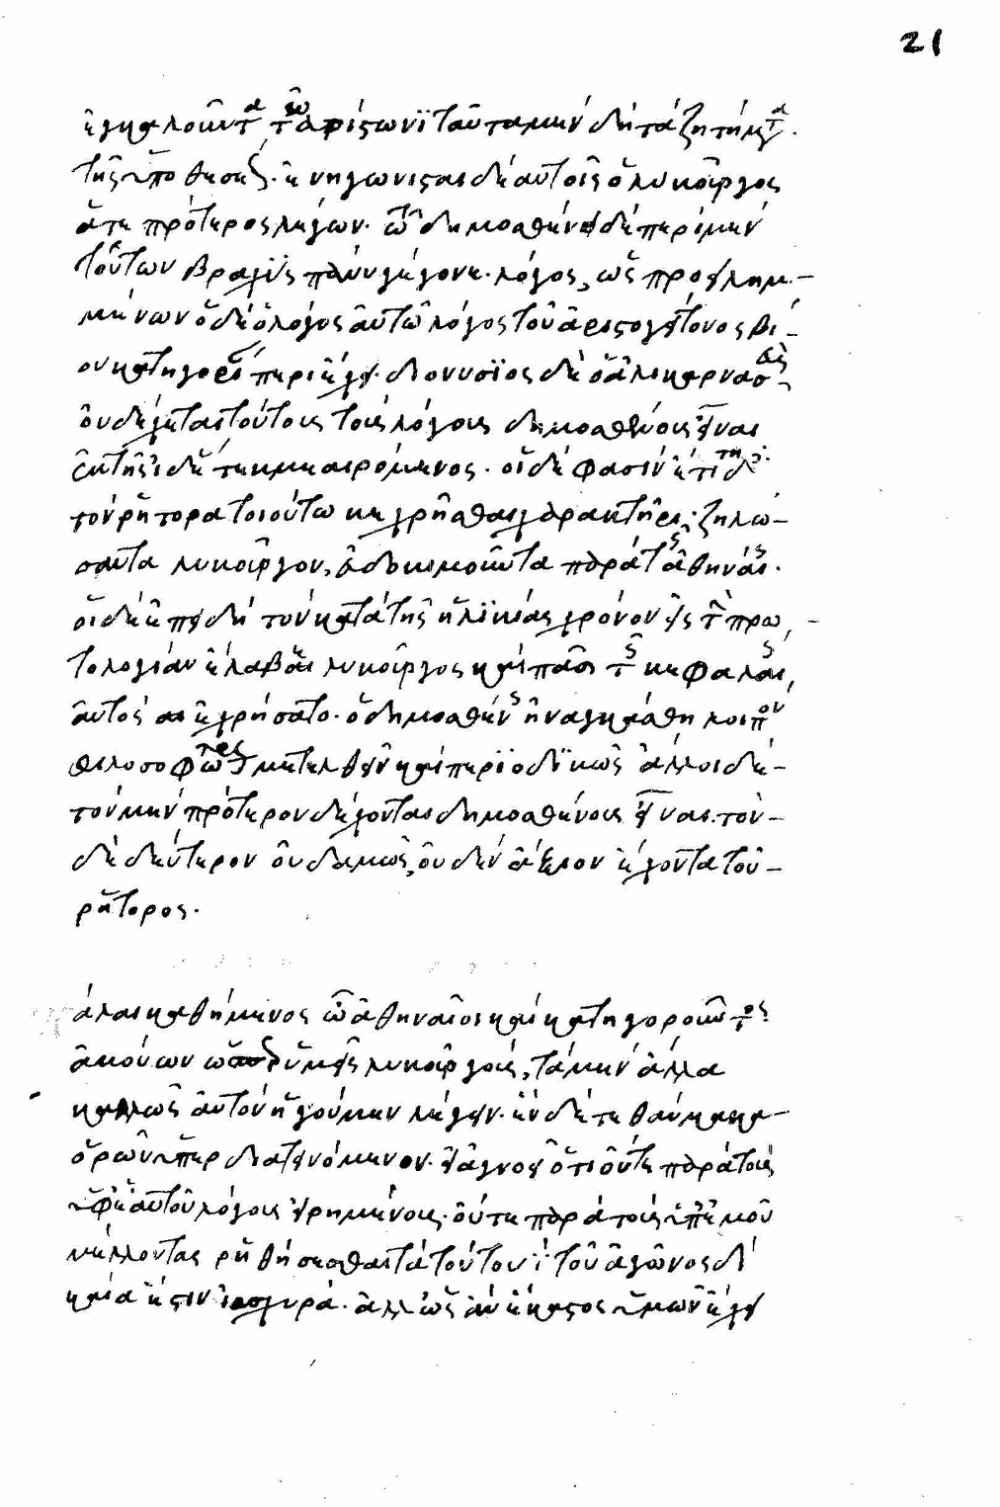 21
ἐγκαλοῦντα τῷ Ἀριστογείτονι ταῦτα μὲν δὴ τὰ ζητήματα
τῆς ὑποθέσεως. ἠγώνισται δὲ αὐτοῖς ὁ λυκοῦργος
ἅτε πρότερος λέγων. τῷ δημοσθένει δὲ περὶ μὲν
τούτων βραχὺς πάνυ γέγονε λόγος, ὡς προειλημ-
μένων ὁ δὲ ὅλος αὐτῷ λόγος τοῦ ἀριστογείτονος βί-
ου κατηγορίαν περιέχει. διονύσιος δὲ ὁ ἁλικαρνασεὺς
οὐ δέχεται τούτους τοὺς λόγους δημοσθένους εἶναι
ἐκ τῆς ἰδέας τεκμαιρόμενος. οἱ δέ φασιν ἐπίτηδες
τὸν ῥήτορα τοιούτῳ κεχρῆσθαι χαρακτῆρι. ζηλώ-
σαντα λυκοῦργον, εὐδοκιμοῦντα παρὰ τοῖς ἀθηναίοις.
οἱ δὲ ἐπειδὴ τὸν κατὰ τῆς ἡλικίας χρόνον εἰς τὴν πρω-
τολογίαν ἔλαβε λυκοῦργος καὶ πᾶσι τοῖς κεφαλαίοις
αὐτὸς ἐχρήσατο. ὁ δημοσθένης ἠναγκάσθη λοιπὸν
φιλοσοφώτερον μετελθεῖν καὶ περιοδικῶς ἄλλοι δὲ
τὸν μὲν πρότερον δέχονται δημοσθένους εἶναι. τὸν
δὲ δεύτερον οὐδαμῶς, οὐδὲν ἄξιον ἔχοντα τοῦ
ῥήτορος.
άλαι καθήμενος ὦ ἀθηναῖοι καὶ κατηγοροῦντος
ἀκούων ὥσπερ ὑμεῖς λυκούργου, τὰ μὲν ἄλλα
καλῶς αὐτὸν ἡγούμην λέγειν. ἓν δέ τι θαύμακα
ὁρῶν ὑπερδιατεινόμενον. εἰ ἀγνοεῖ ὅτι οὔτε παρὰ τοὺς
ὑφ' ἑαυτοῦ λόγους εἰρημένους. οὔτε παρὰ τοὺς ὑπ' ἐμοῦ
μέλλοντας ῥηθήσεσθαι τὰ τουτουῒ τοῦ ἀγῶνος δί-
καιά ἐστιν ἰσχυρά. ἀλλ' ὡς ἂν ἕκαστος ὑμῶν ἔχει